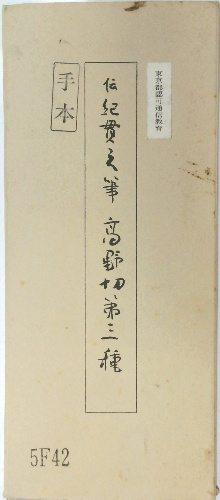 東京都認可通信教育
手本
伝紀貫之筆 高野切第三種
5F42